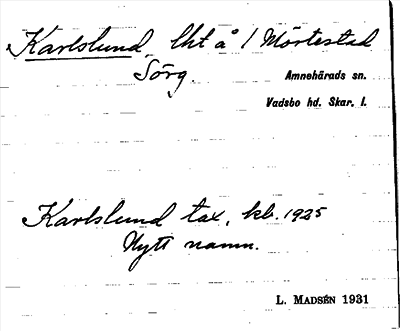 Karlslund, lht å 1 Mörtestad
Sörg.
Amnehärads sn.
Vadsbo hd. Skar. l.
Karlslund tax. kb. 1925
Nytt namn.
L. MADSÉN 1931